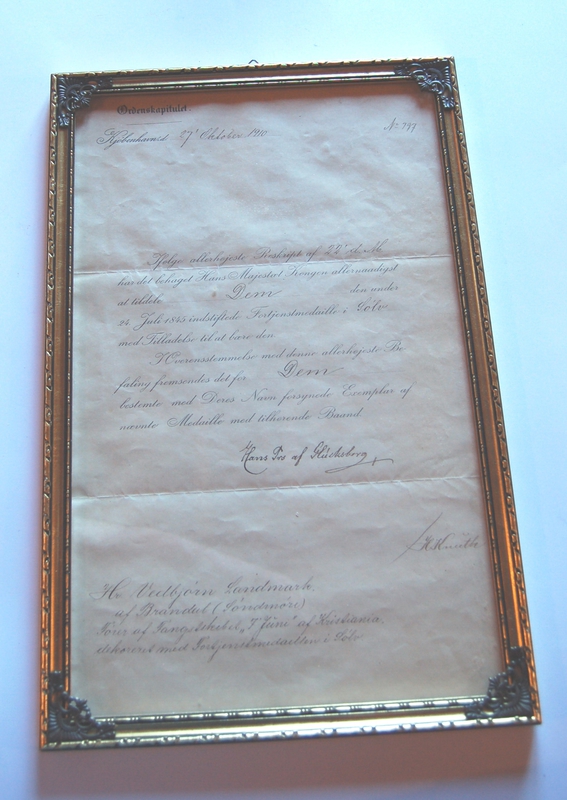 Ordenskapitulet.
Kjøbenhavn d. 27' Oktober 1910
No 797
Ifølge allerhøjeste Reskript af 22' d. M.
har det behaget Hans Majestæt Kongen allernaadigst
at tildele Dem den under
24 Juli 1845 indstiftede Fortjenstmedaille i Sølv
med Tilladelse til at bære den.
I Overensstemmelse med denne allerhøjeste Be-
faling fremsendes det for Dem
bestemte med Deres Navn forsynede Exemplar af
nævnte Medaille med tilhørende Baand.
Hans Prs af Glücksborg
Knuth
Hr Vedbjørn Landmark,
af Brandal (Søndmøre)
Fører af Fangstskibet „7' Juni" af Kristiania,
dekoreret med Fortjenstmedaillen i Sølv